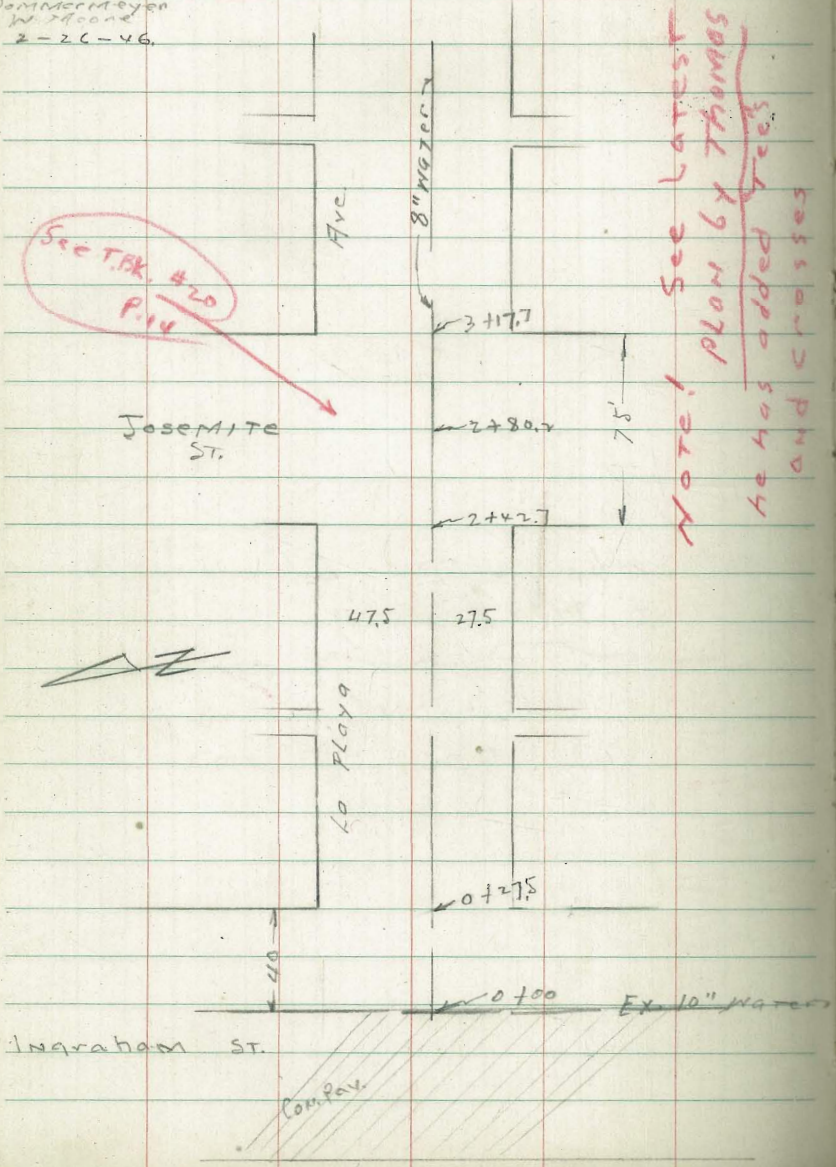 Sommermeyer
W. Moore
2-26-46.
8" Water
Ave
See T.BK. #20
P.14
3+17.7
Josemite
ST.
2+80.2
75'
2+42.7
47.5
27.5
N
La Playa
0+27.5
40
0+00
Ex. 10" Water
Ingraham ST.
Con. Pav.
Note! See Latest
Plan by Thomas
he has added Tees
and crosses